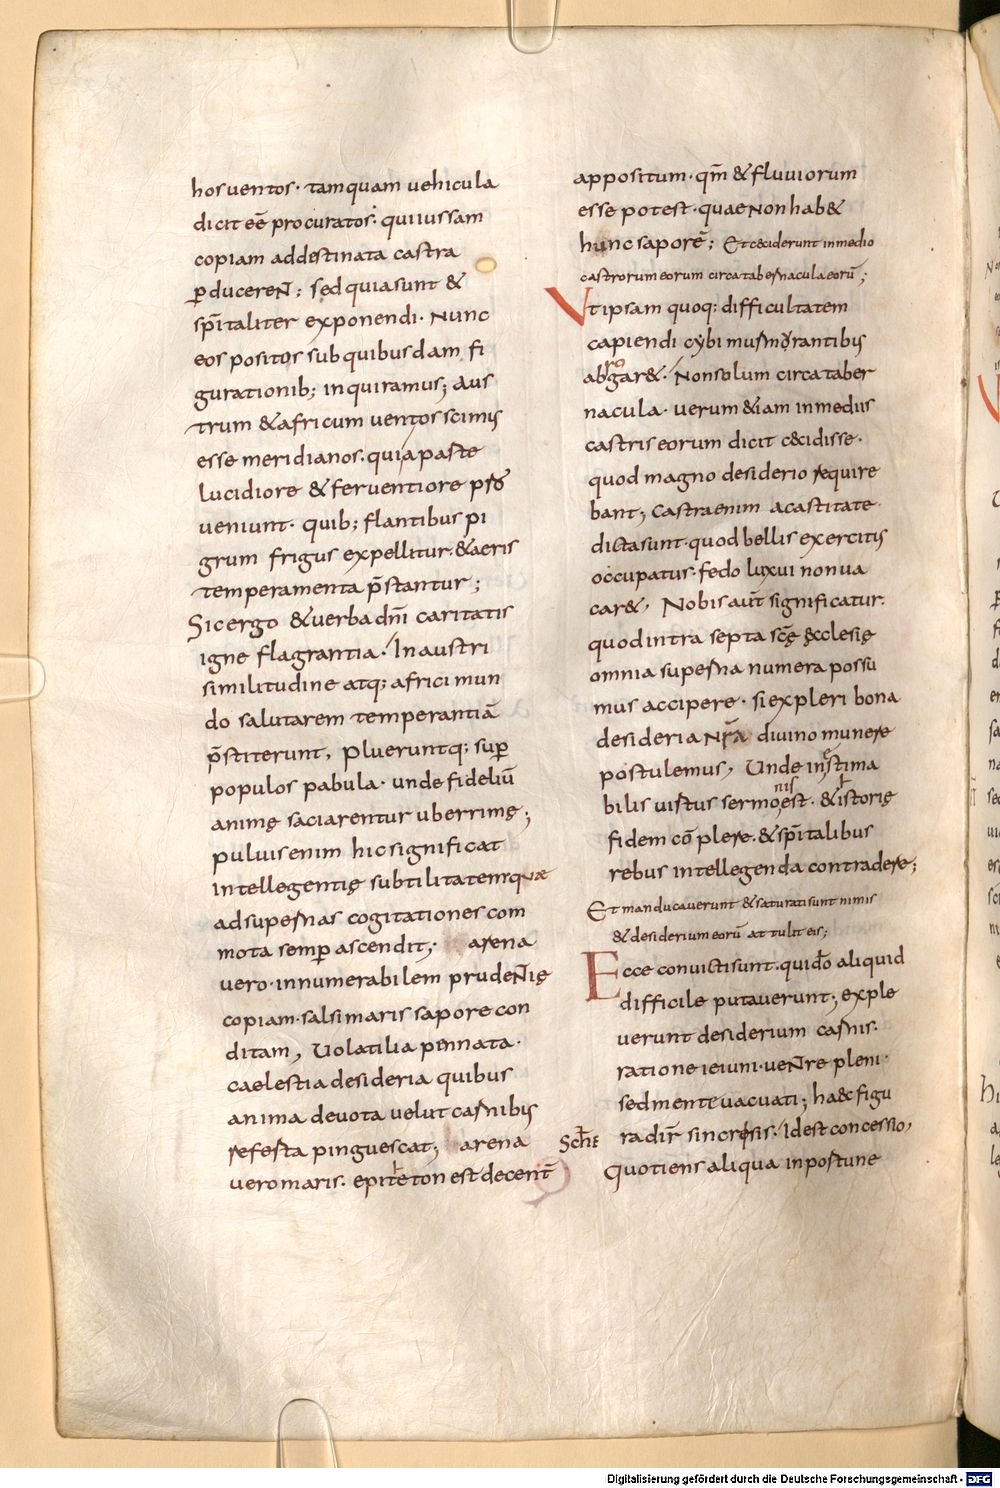 hos uentos · tamquam uehicula
dicit eē procuratos · qui iussam
copiam ad destinata castra
ꝑducereNT ; sed quia sunt &
spītaliter exponendi · Nunc
eos positos sub quibusdam fi
gurationib; inquiramus; Aus
trum & africum uentos scimus
esse meridianos · quia paste
lucidiore & feruentiore
ueniunt · quib; flantibus pi
grum frigus expellitur · & aeris
temperamenta p̄stantur ;
Sic ergo & uerba dn̄i caritatis
igne flagrantia · In austri
similitudine atq; africi mun
do salutarem temperantiā
p̄stiterunt, Plueruntq; suꝑ
populos pabula · unde fideliū
animę saciarentur uberrimę ;
puluis enim hic significat
intellegentię subtilitatem quae
ad supernas cogitationes com
mota semꝑ ascendit ; arena
uero · innumerabilem prudeNTię
copiam · salsi maris sapore con
ditam, Uolatilia pennata ·
caelestia desideria quibus
anima deuota uelut carnibus
referta pinguescat ; arena
uero maris · epiteton est decenT̄
appositum · qm̄ & fluuiorum
esse potest · quae Non hab&
hunc saporē ; Et ceciderunt in medio
castrorum eorum circa tabernacula eorū ;
Vt ipsam quoq: difficultatem
capiendi cybi murmorantibus
abrogar& · Non solum circa taber
nacula · uerum &iam in mediis
castris eorum dicit cecidisse ·
quod magno desiderio require
bant ; Castra enim a castitate
dicta sunt · quod bellis exercitus
occupatus · fedo luxui non ua
car&, Nobis aut̄ significatur ·
quod intra septa scę̄ ęcclesię
omnia superna numera possu
mus accipere · si expleri bona
desideria Nr̄a diuino munere
postulemus, Unde inęstima
bilis uirtus sermonis est · & istorię
fidem cōplere · & spītalibus
rebus intellegenda contradere ;
Et manducauerunt & saturati sunt nimis
& desiderium eorū attulit eis ;
Ecce conuicti sunt · quid aliquid
difficile putauerunt ; exple
uerunt desiderium carnis ·
ratione ieiuni · ueNTre pleni ·
sed mente uacuati ; haec figu
ra dir̄ sincresis · Idest concessio,
Sche
Quotiens aliqua inportune
Digitalisierung gefördert durch die Deutsche Forschungsgemeinschaft - DFG